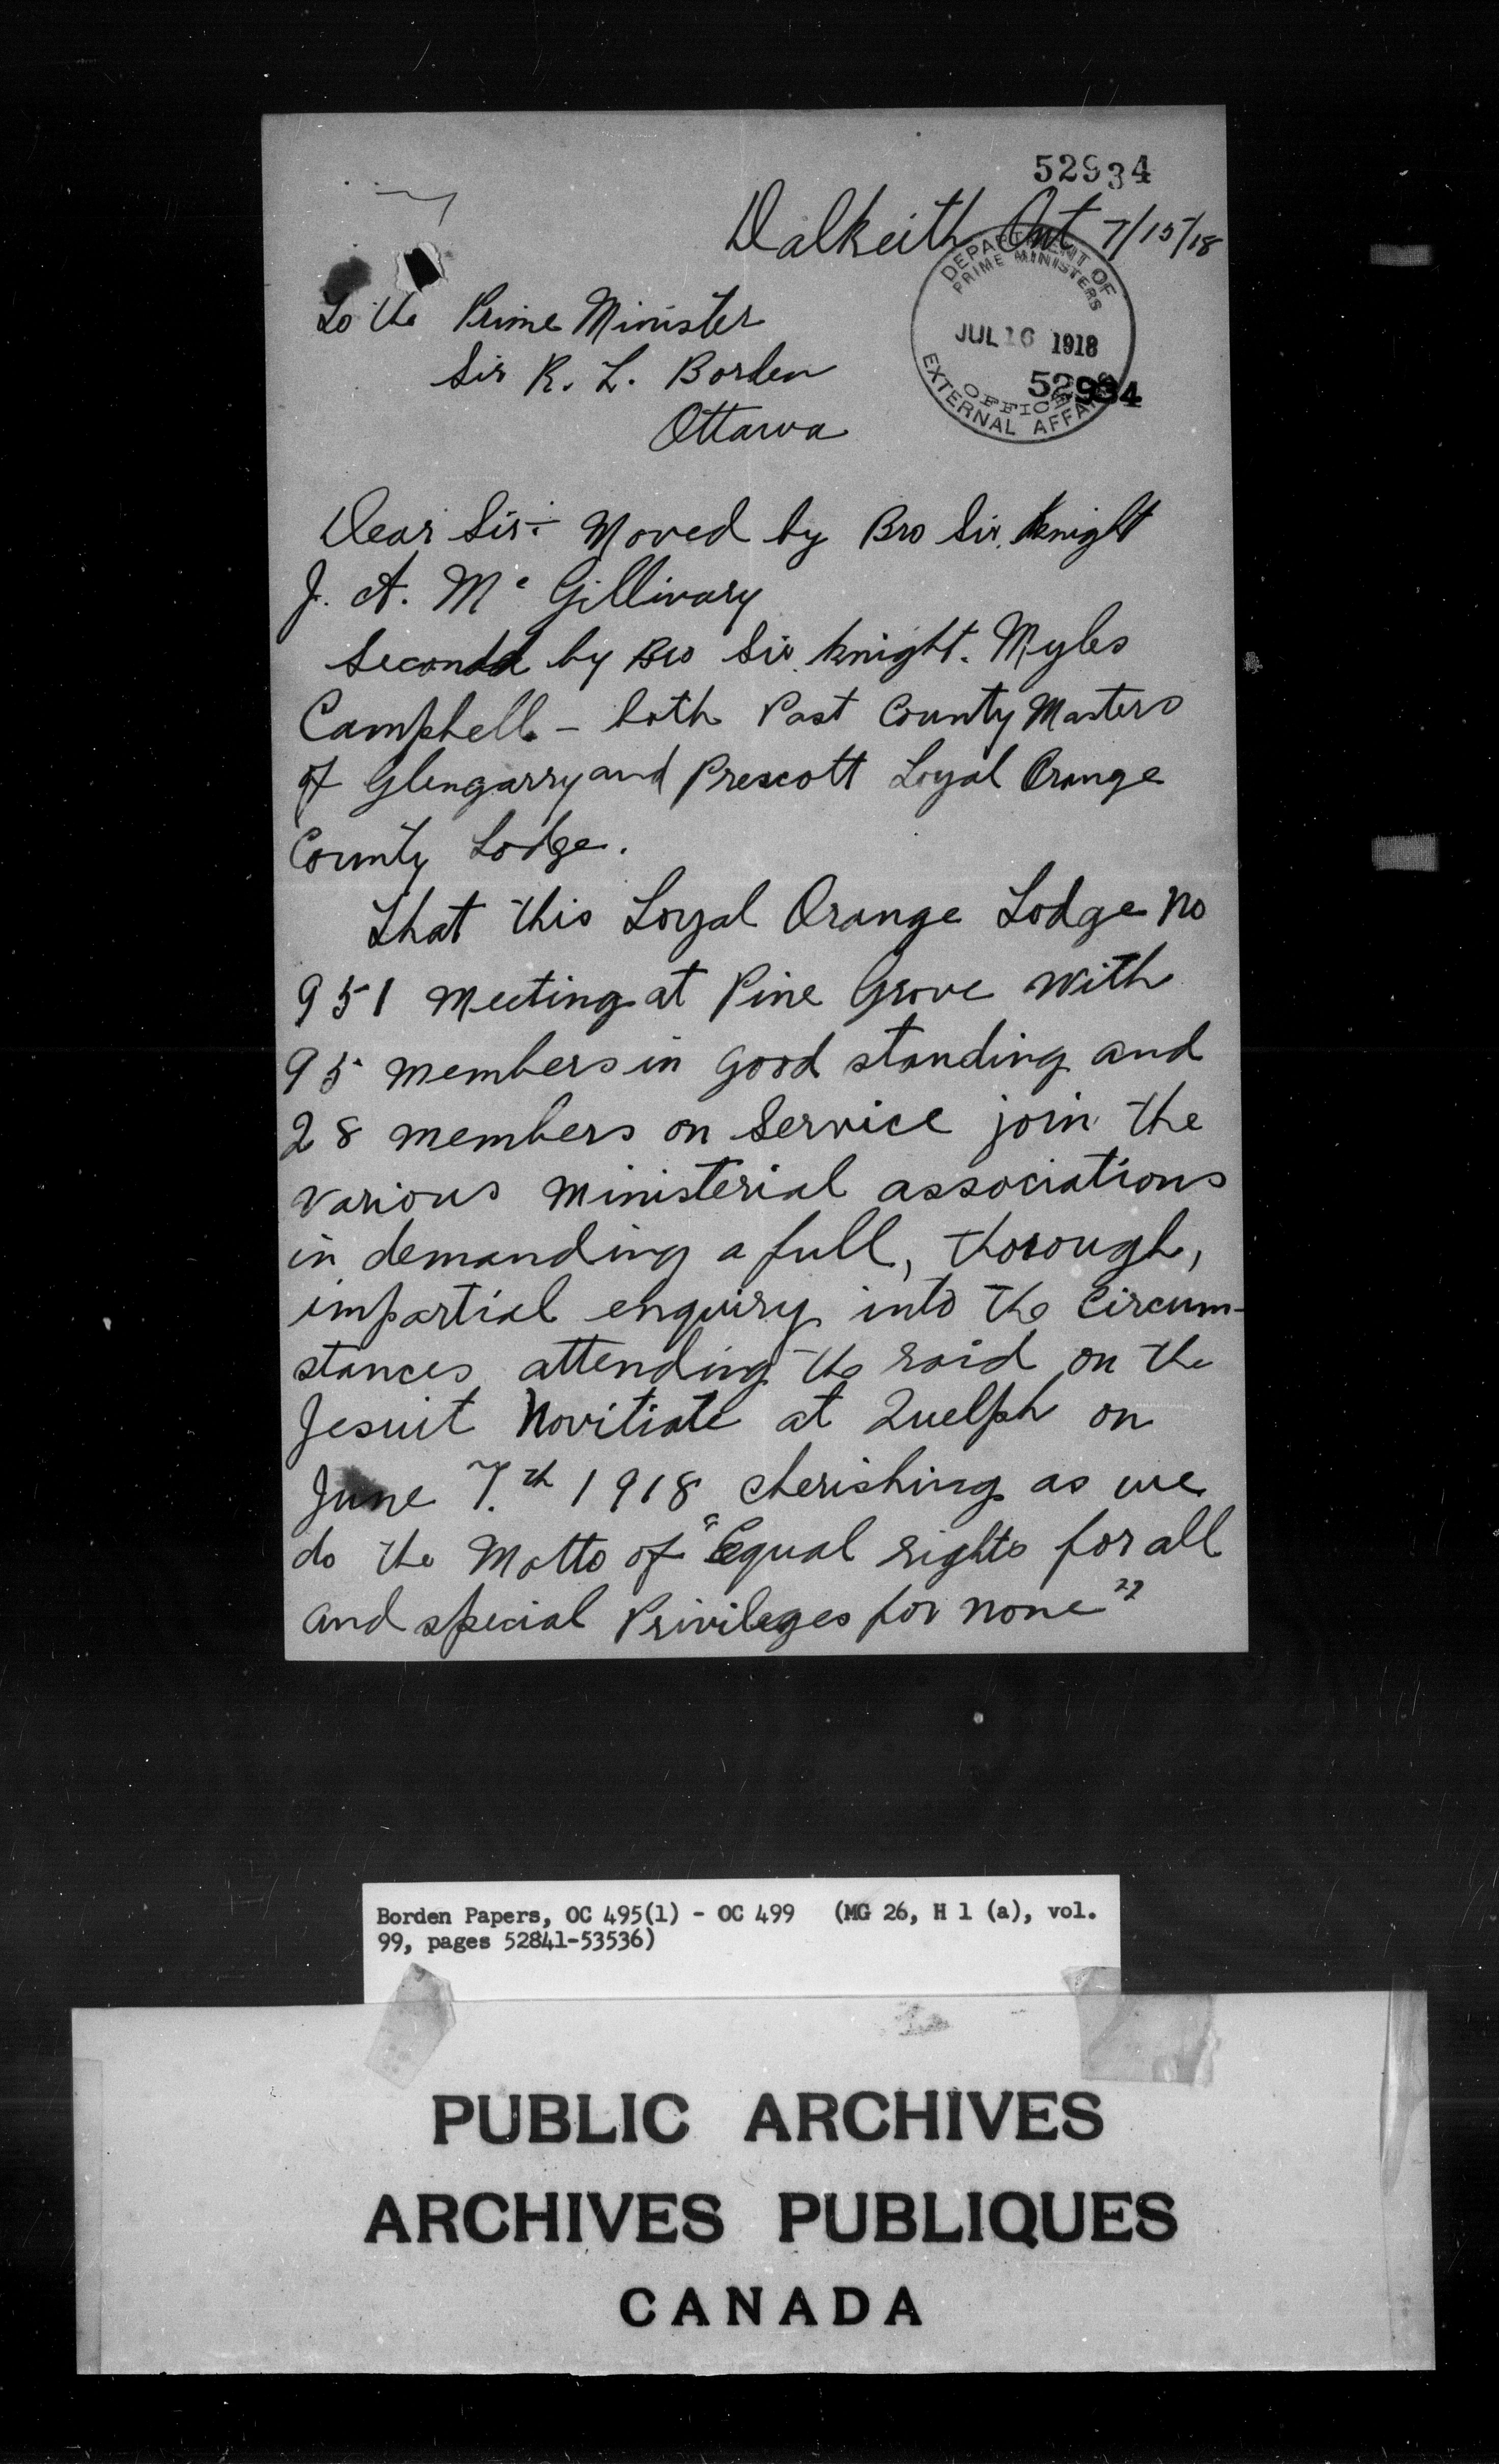 52934
Dalkeith Ont 7/15/18
DEPARTMENT OF
PRIME MINISTERS
JUL 16 1918
52934
OFFICE
EXTERNAL AFFAIRS
To the Prime Minister
Sir R. L. Borden
Ottawa
Dear Sir:- Moved by Bro Sir. Knight
J. A. Mc Gillivary
Secondd by Bro Sir. Knight. Myles
Campbell - both Past County Masters
of Glengarry and Prescott Loyal Orange
County Lodge.
That this Loyal Orange Lodge No
951 meeting at Pine Grove with
95 members in good standing and
28 members on Service join the
various ministerial associations
in demanding a full, thorough,
impartial enquiry into the circum-
stances attending the raid on the
Jesuit Novitiate at Guelph on
June 7.th 1918 cherishing as we
do the Motto of "Equal rights for all
and special Privileges for none"
Borden Papers, OC 495(1) - OC 499 (MG 26, H 1 (a), vol.
99, pages 52841-53536)
PUBLIC ARCHIVES
ARCHIVES PUBLIQUES
CANADA